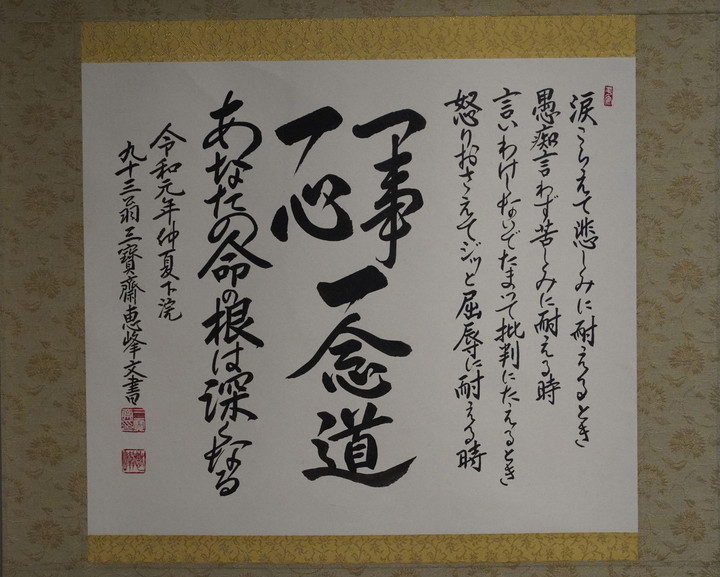 涙こらえて悲しみに耐えるとき
愚痴言わず苦しみに耐える時
言いわけしないでだまって批判にたえるとき
怒りおさえてジッと屈辱に耐える時
一事一心
一念道
あなたの命の根は深くなる
令和元年仲夏下浣
九十三翁三寶齋恵峰文書